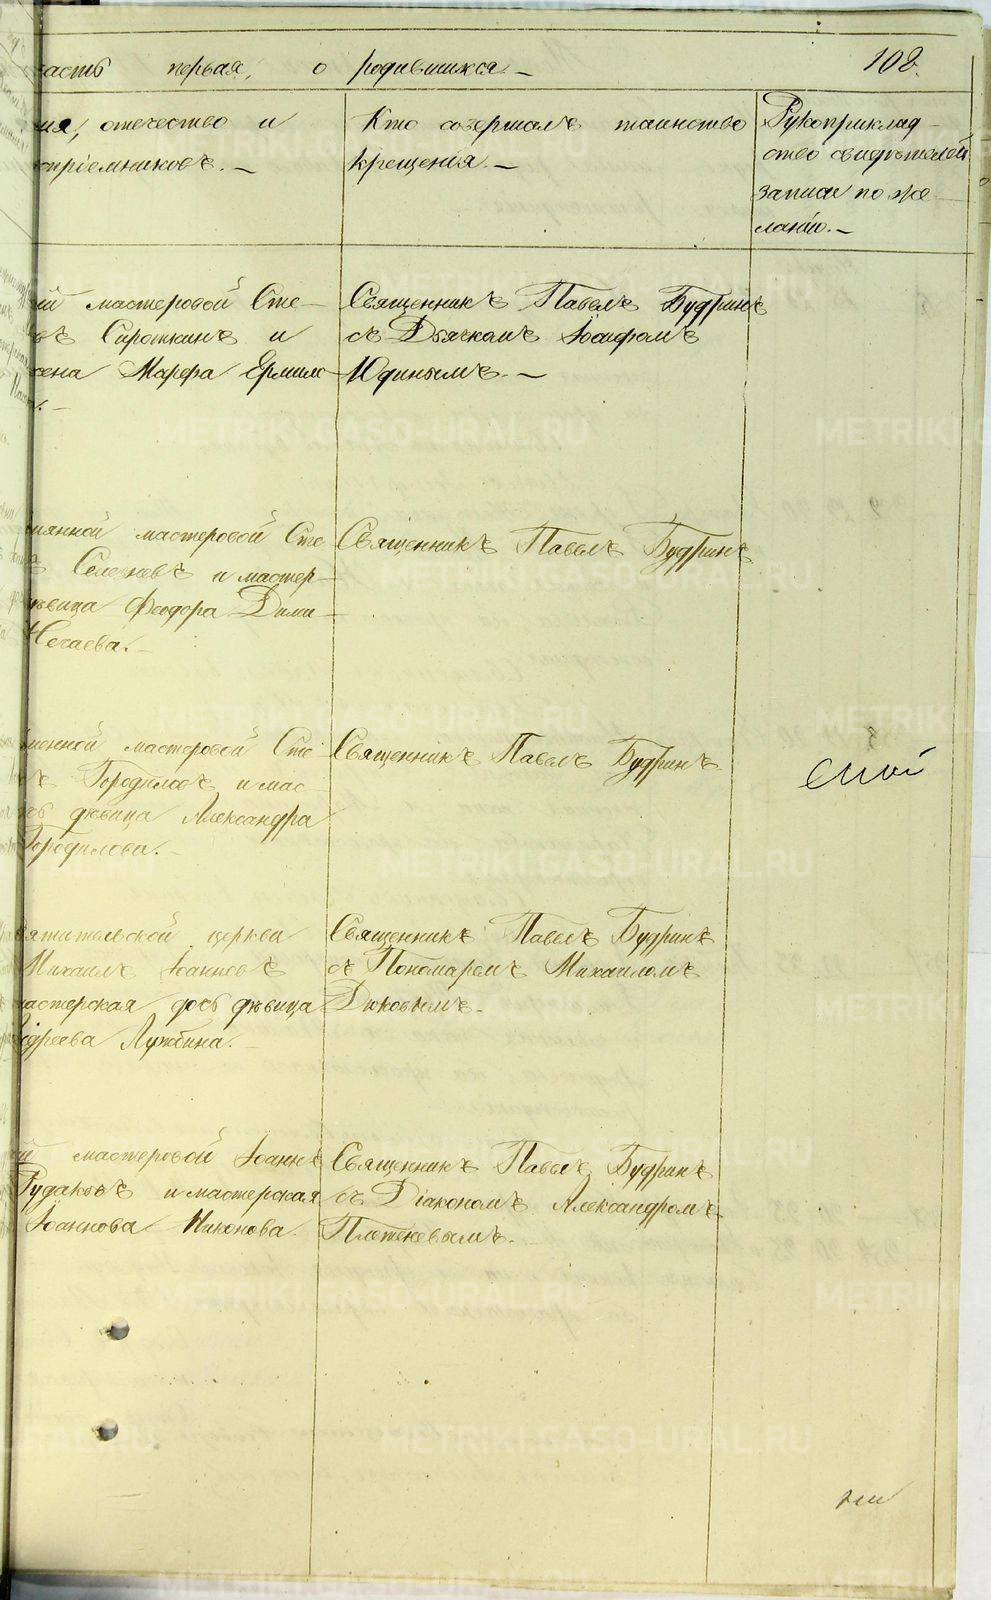 часть первая, о родившихся.— 108.
мя, отечество и
спріемниковъ.—
Кто совершалъ таинство
крещенія.—
Рукоприклад-
ство свидѣтелей
записи по же-
ланію.—
ий мастеровой Сте-
въ Сироткинъ и
жена Марфа Ермило-
Священникъ Павелъ Будринъ
съ Дьячкомъ Іосифомъ
Юдинымъ.—
мянной мастеровой Сте
Селезневъ и мастер-
дѣвица Феодора Дими-
Нечаева.—
Священникъ Павелъ Будринъ
менной мастеровой Сте
нъ Городиловъ и мас-
дѣвица Александра
Городилова.—
Священникъ Павелъ Будринъ
вятительской церкви
Михаилъ Іоанновъ
мастерская дочь дѣвица
ндреева Лужбина.—
Священникъ Павелъ Будринъ
съ Пономаремъ Михаиломъ
Дюковымъ.—
ій мастеровой Іоаннъ
Рудаковъ и мастерская
Іоаннова Никонова.
Священникъ Павелъ Будринъ
съ Діакономъ Александромъ
Плетеневымъ.—
METRIKI.GASO-URAL.RU